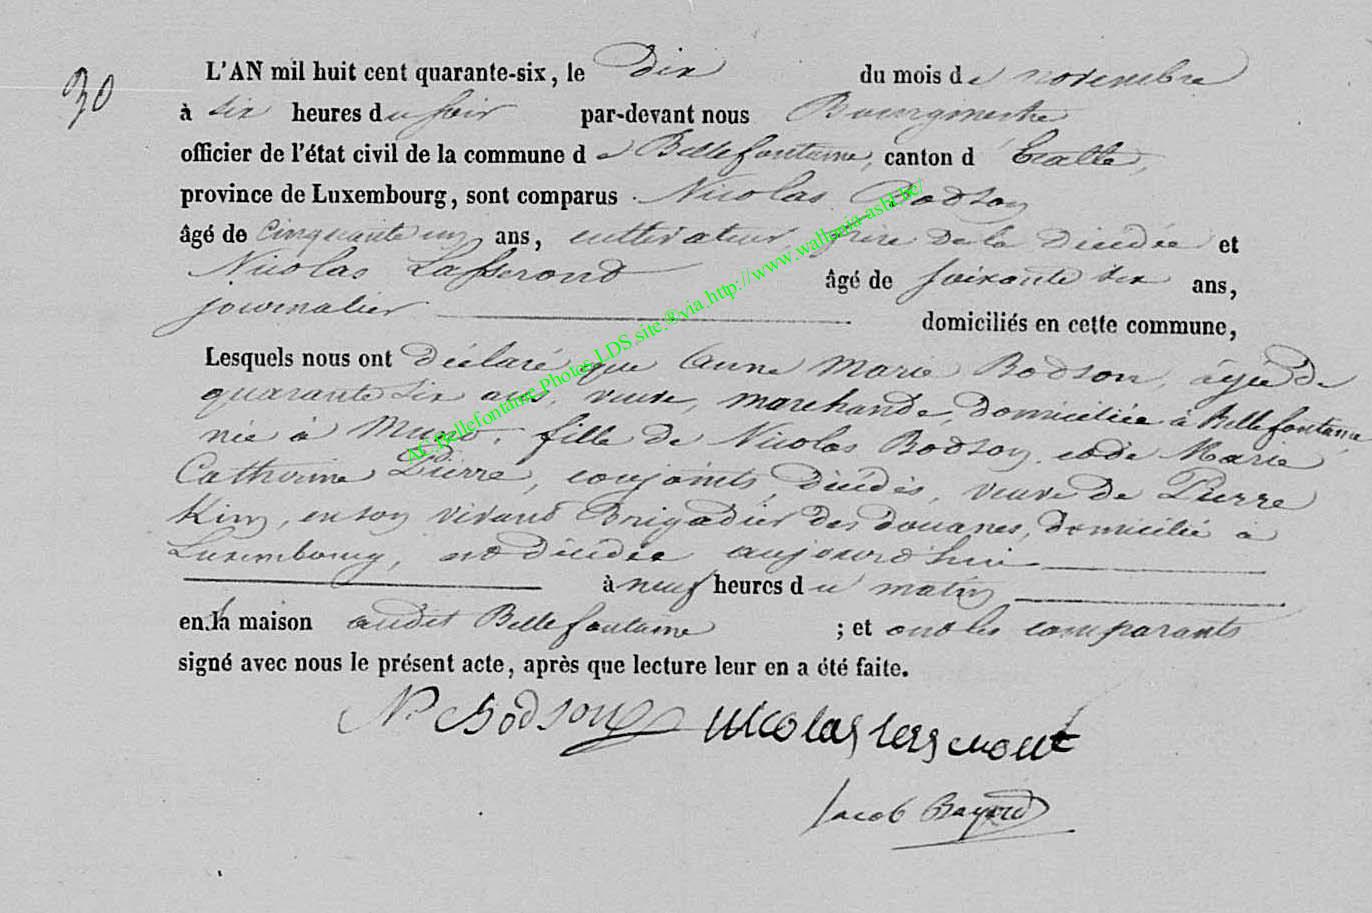 30
L'AN mil huit cent quarante-six, le dix du mois de novembre
à six heures du soir par-devant nous Bourgmestre
officier de l'état civil de la commune de Bellefontaine, canton d'Etalle,
province de Luxembourg, sont comparus Nicolas Bodson
âgé de cinquante un ans, cultivateur, frère de la décédée et
Nicolas âgé de soixante dix ans,
journalier domiciliés en cette commune,
Lesquels nous ont déclaré que Anne Marie Bodson, âgée de
quarante six ans, veuve, marchande, domiciliée à Bellefontaine,
née à Muno, fille de Nicolas Bodson et de Marie
Catherine Pierre, conjoints décédés, veuve de Pierre
Kin, en son vivant Brigadier des douanes, domicilié à
Luxembourg, est décédée aujourd'hui
à neuf heures du matin
en la maison audit Bellefontaine ; et ont les comparants
signé avec nous le présent acte, après que lecture leur en a été faite.
N. Bodson nicolas
Jacob Bayard
AC.Bellefontaine.Photos.LDS.site.®via.http://www.wallonia-asbl.be/